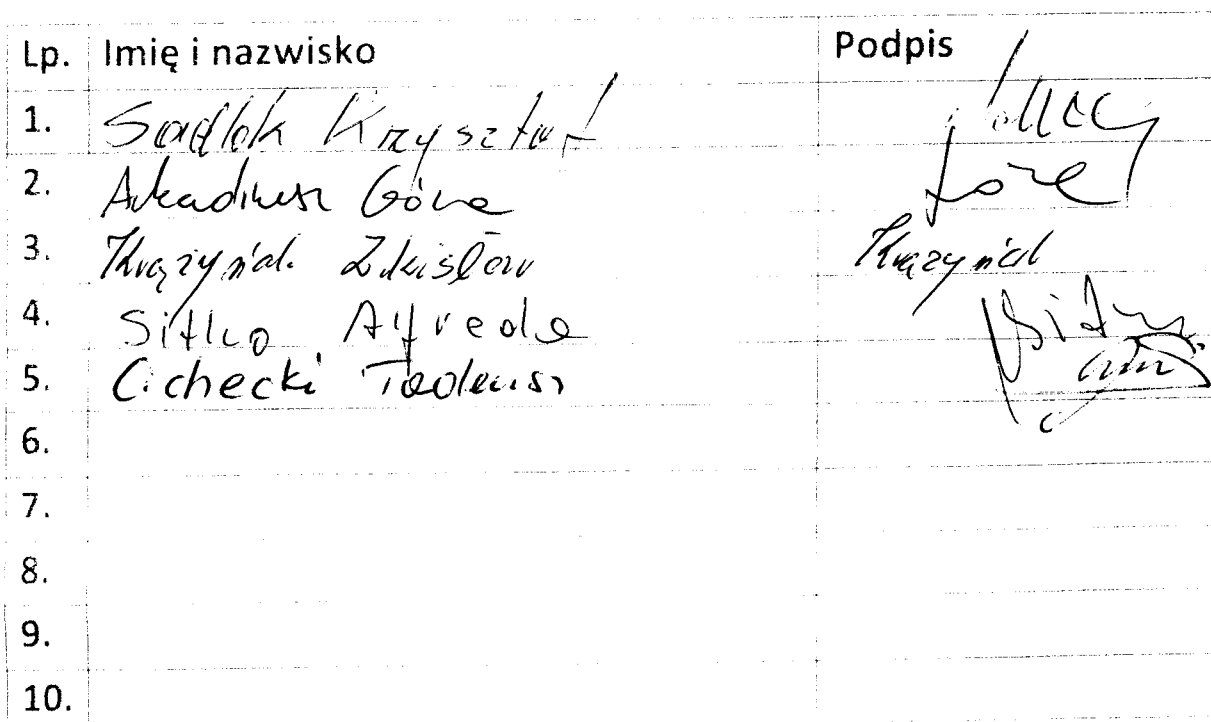 Lp. Imię i nazwisko Podpis
1. Sadlok Krzysztof
2. Arkadiusz Góra
3. Zdzisław
4. Sitko Alfreda
5. Cichecki Tadeusz
6.
7.
8.
9.
10.